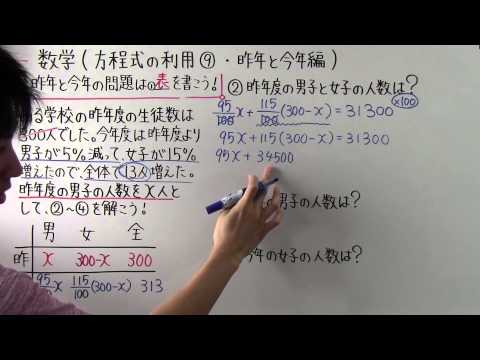 数学(方程式の利用⑨・昨年と今年編)
昨年と今年の問題は の表を書こう!
る学校の昨年度の生徒数は
300人でした。今年度は昨年度より
男子が5%減って、女子が15%
増えたので、全体で13人増えた。
昨年度の男子の人数をx人と
して、②〜④を解こう!
男 女 全
昨 x 300-x 300
95/100 x 115/100 (300-x) 313
②昨年度の男子と女子の人数は?
95/100 x + 115/100 (300-x) = 31300
×100
95x+115(300-x)=31300
95x+34500
の男子の人数は?
今年の女子の人数は?